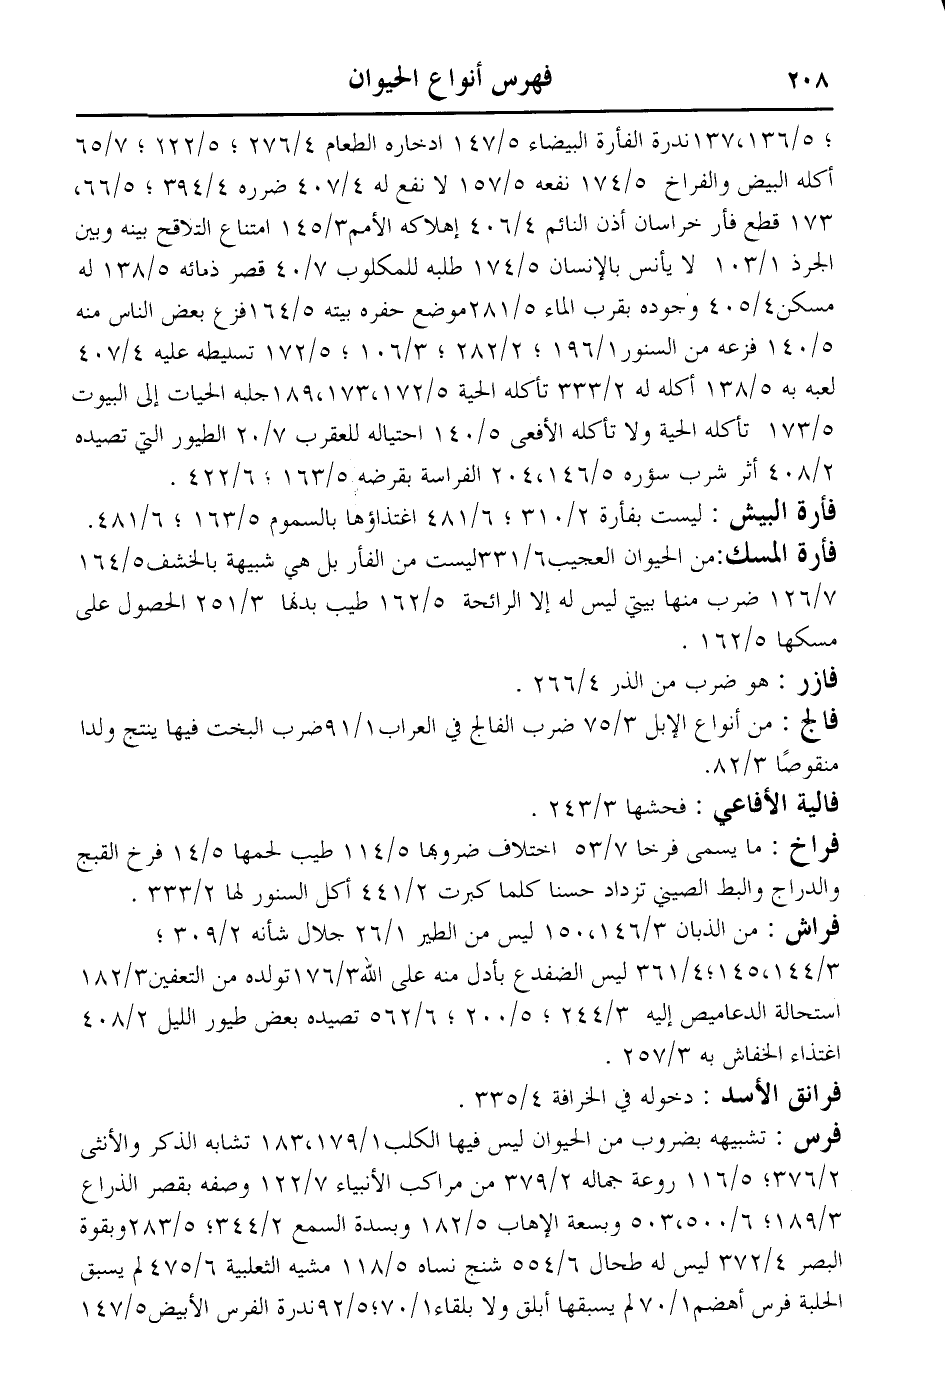 ٢٠٨ فهرس أنواع الحيوان
؛ ١٣٦/٥،١٣٧ندرة الفأرة البيضاء ١٤٧/٥ ادخاره الطعام ٢٧٦/٤ ؛ ٢٢٢/٥ ؛ ٦٥/٧
أكله البيض والفراخ ١٧٤/٥ نفعه ١٥٧/٥ لا نفع له ٤٠٧/٤ ضرره ٣٩٤/٤ ؛ ٦٦/٥،
١٧٣ قطع فأر خراسان أذن النائم ٤٠٦/٤ إهلاكه الأمم١٤٥/٣ امتناع التلاقح بينه وبين
الجرذ ١٠٣/١ لا يأنس بالإنسان ١٧٤/٥ طلبه للمكلوب ٤٠/٧ قصر ذمائه ١٣٨/٥ له
مسكن٤٠٥/٤ وجوده بقرب الماء ٢٨١/٥موضع حفره بيته ١٦٤/٥فزع بعض الناس منه
١٤٠/٥ فزعه من السنور١٩٦/١ ؛ ٢٨٢/٢ ؛ ١٠٦/٣ ؛ ١٧٢/٥ تسليطه عليه ٤٠٧/٤
لعبه به ١٣٨/٥ أكله له ٣٣٣/٢ تأكله الحية ١٧٢/٥،١٧٣،١٨٩جلبه الحيات إلى البيوت
١٧٣/٥ تأكله الحية ولا تأكله الأفعى ١٤٠/٥ احتياله للعقرب ٢٠/٧ الطيور التي تصيده
٤٠٨/٢ أثر شرب سؤره ١٤٦/٥،٢٠٤ الفراسة بقرضه ١٦٣/٥ ؛ ٤٢٢/٦ .
فأرة البيش : ليست بفأرة ٣١٠/٢ ؛ ٤٨١/٦ اغتذاؤها بالسموم ١٦٣/٥ ؛ ٤٨١/٦.
فأرة المسك:من الحيوان العجيب٣٣١/٦ليست من الفأر بل هي شبيهة بالخشف١٦٤/٥
١٢٦/٧ ضرب منها بيتي ليس له إلا الرائحة ١٦٢/٥ طيب بدلها ٢٥١/٣ الحصول على
مسكها ١٦٢/٥ .
فازر : هو ضرب من الذر ٢٦٦/٤ .
فالج : من أنواع الإبل ٧٥/٣ ضرب الفالج في العراب٩١/١ضرب البخت فيها ينتج ولدا
منقوصًا ٨٢/٣.
فالية الأفاعي : فحشها ٢٤٣/٣ .
فراخ : ما يسمى فرخا ٥٣/٧ اختلاف ضروها ١١٤/٥ طيب لحمها ١٤/٥ فرخ القبج
والدراج والبط الصيني تزداد حسنا كلما كبرت ٤٤١/٢ أكل السنور لها ٣٣٣/٢ .
فراش : من الذبان ١٤٦/٣،١٥٠ ليس من الطير ٢٦/١ جلال شأنه ٣٠٩/٢ ؛
١٤٤/٣،١٤٥؛٣٦١/٤ ليس الضفدع بأدل منه على الله١٧٦/٣تولده من التعفين١٨٢/٣
استحالة الدعاميص إليه ٢٤٤/٣ ؛ ٢٠٠/٥ ؛ ٥٦٢/٦ تصيده بعض طيور الليل ٤٠٨/٢
اغتذاء الخفاش به ٢٥٧/٣ .
فرانق الأسد : دخوله في الخرافة ٣٣٥/٤ .
فرس : تشبيهه بضروب من الحيوان ليس فيها الكلب١٧٩/١،١٨٣ تشابه الذكر والأنثى
٣٧٦/٢؛ ١١٦/٥ روعة جماله ٣٧٩/٢ من مراكب الأنبياء ١٢٢/٧ وصفه بقصر الذراع
١٨٩/٣؛ ٥٠٠/٦،٥٠٣ وبسعة الإهاب ١٨٢/٥ وبسدة السمع ٣٤٤/٢؛ ٢٨٣/٥وبقوة
البصر ٣٧٢/٤ ليس له طحال ٥٥٤/٦ شنج نساه ١١٨/٥ مشيه الثعلبية ٤٧٥/٦ لم يسبق
الحلبة فرس أهضم٧٠/١ لم يسبقها أبلق ولا بلقاء٧٠/١؛٩٢/٥ندرة الفرس الأبيض١٤٧/٥